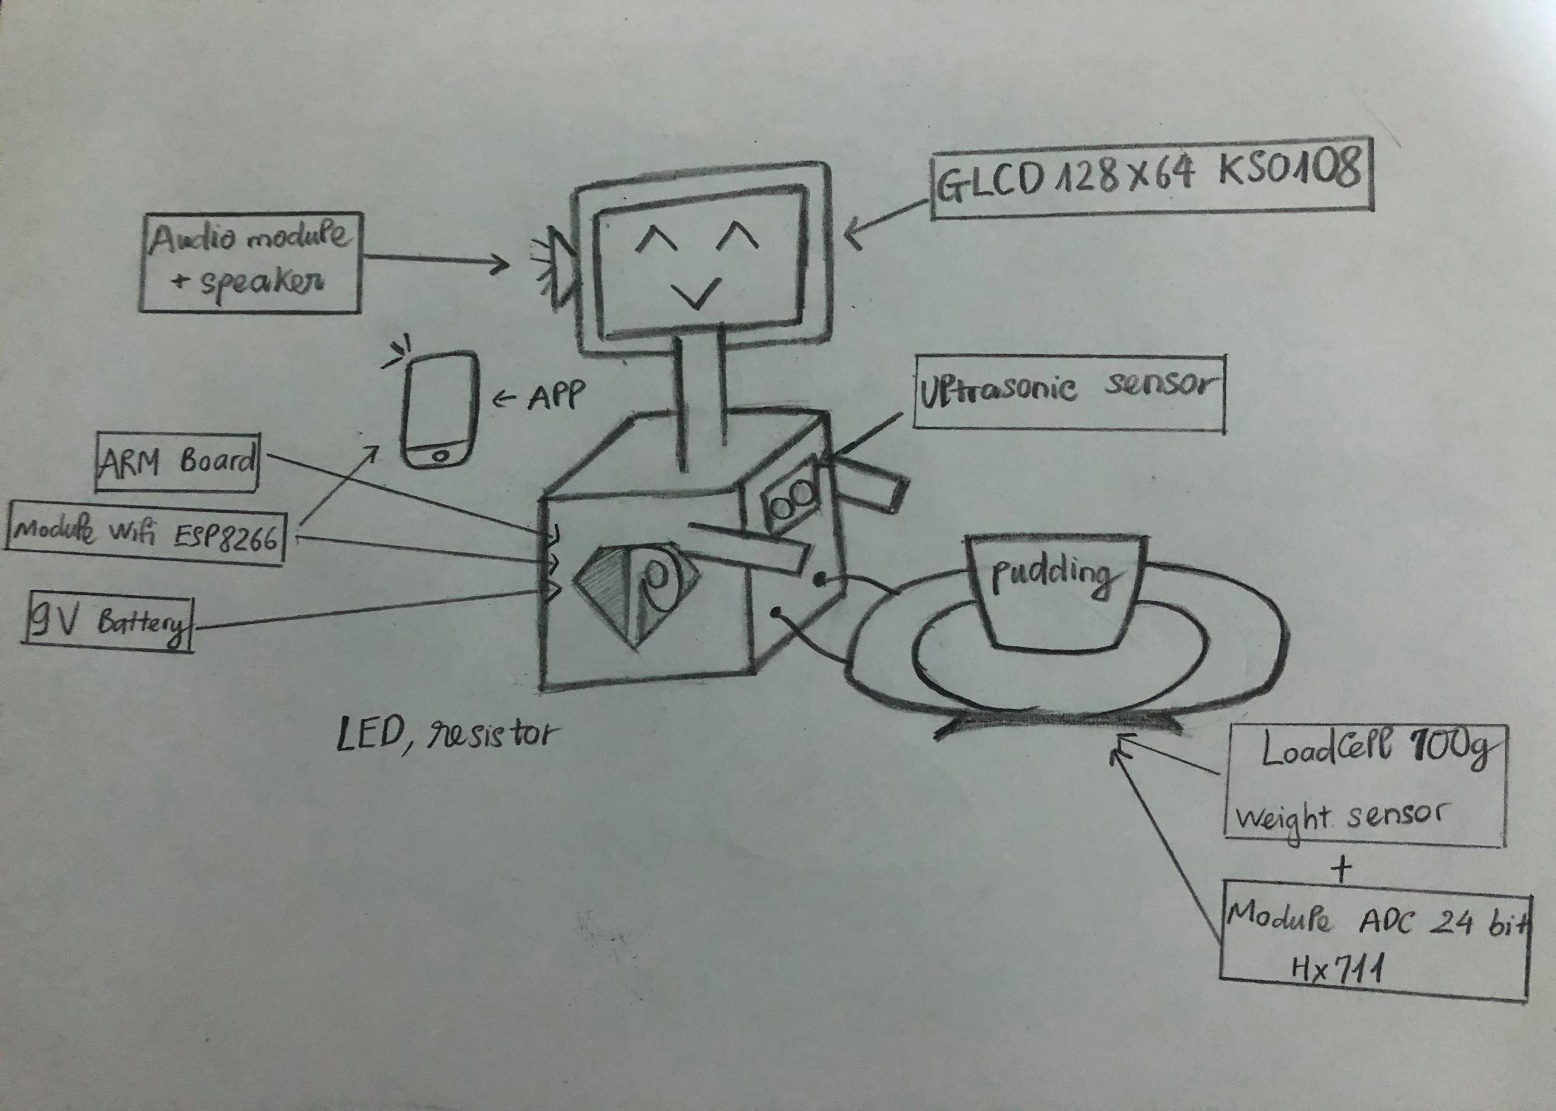 GLCD 128x64 KS0108
Audio module
+ speaker
Ultrasonic sensor
← APP
ARM Board
Module Wifi ESP8266
9V Battery
pudding
LED, resistor
LoadCell 100g
Weight sensor
+
Module ADC 24 bit
Hx711